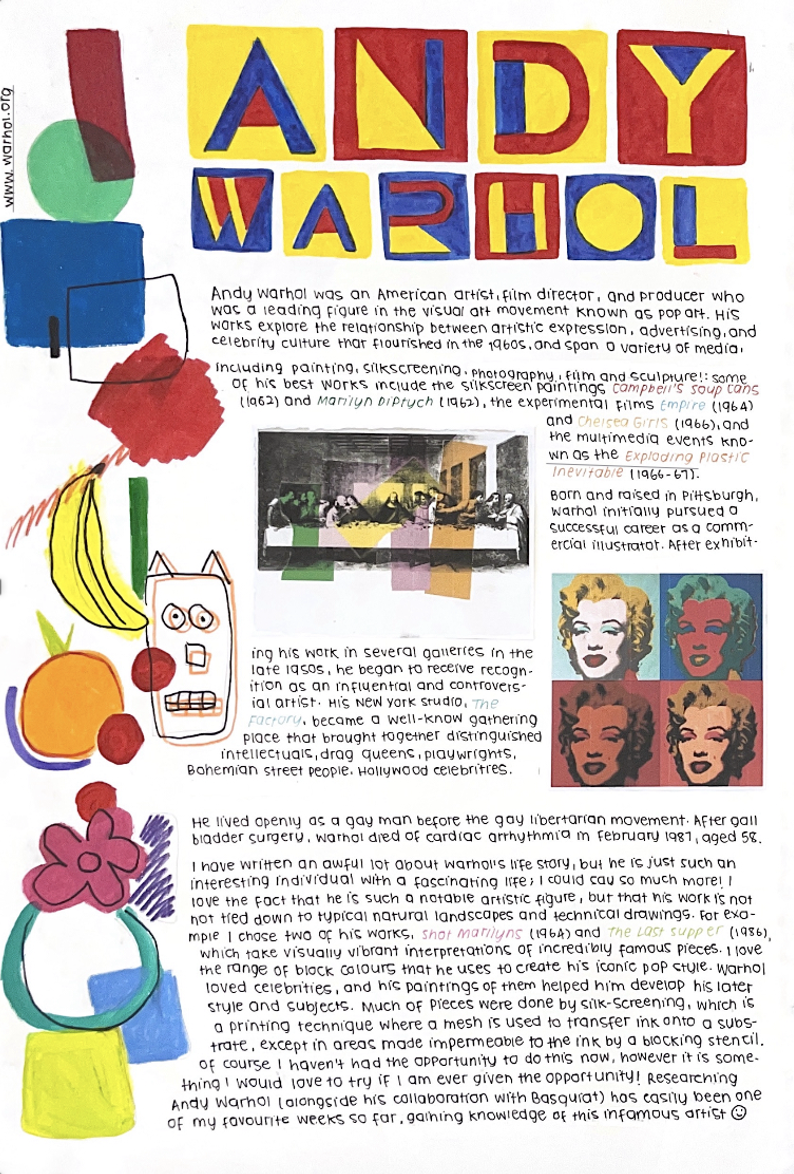 www.warhol.org
ANDY
WARHOL
Andy Warhol was an American artist, film director, and producer who
was a leading figure in the visual art movement known as pop art. His
works explore the relationship between artistic expression, advertising, and
celebrity culture that flourished in the 1960s, and span a variety of media,
including painting, silkscreening, photography, film and sculpture!: some
of his best works include the silkscreen paintings Campbell's soup cans
(1962) and Marilyn Diptych (1962), the experimental films Empire (1964)
and Chelsea Girls (1966), and
the multimedia events kno-
wn as the Exploding Plastic
Inevitable (1966-67).
Born and raised in Pittsburgh,
Warhol initially pursued a
successful career as a comm-
ercial illustrator. After exhibit-
ing his work in several galleries in the
late 1950s, he began to receive recogn-
ition as an influential and controvers-
ial artist. His New York studio, The
Factory, became a well-know gathering
place that brought together distinguished
intellectuals, drag queens, playwrights,
Bohemian street people, Hollywood celebrities.
He lived openly as a gay man before the gay libertarian movement. After gall
bladder surgery, Warhol died of cardiac arrhythmia in February 1987, aged 58.
I have written an awful lot about Warhol's life story, but he is just such an
interesting individual with a fascinating life; I could say so much more! I
love the fact that he is such a notable artistic figure, but that his work is not
not tied down to typical natural landscapes and technical drawings. For exa-
mple I chose two of his works, Shot Marilyns (1964) and The Last Supper (1986),
which take visually vibrant interpretations of incredibly famous pieces. I love
the range of block colours that he uses to create his iconic pop style. Warhol
loved celebrities, and his paintings of them helped him develop his later
style and subjects. Much of pieces were done by silk-screening, which is
a printing technique where a mesh is used to transfer ink onto a subs-
trate, except in areas made impermeable to the ink by a blocking stencil.
Of course I haven't had the opportunity to do this now, however it is some-
thing I would love to try if I am ever given the opportunity! Researching
Andy Warhol (alongside his collaboration with Basquiat) has easily been one
of my favourite weeks so far, gaining knowledge of this infamous artist ☺